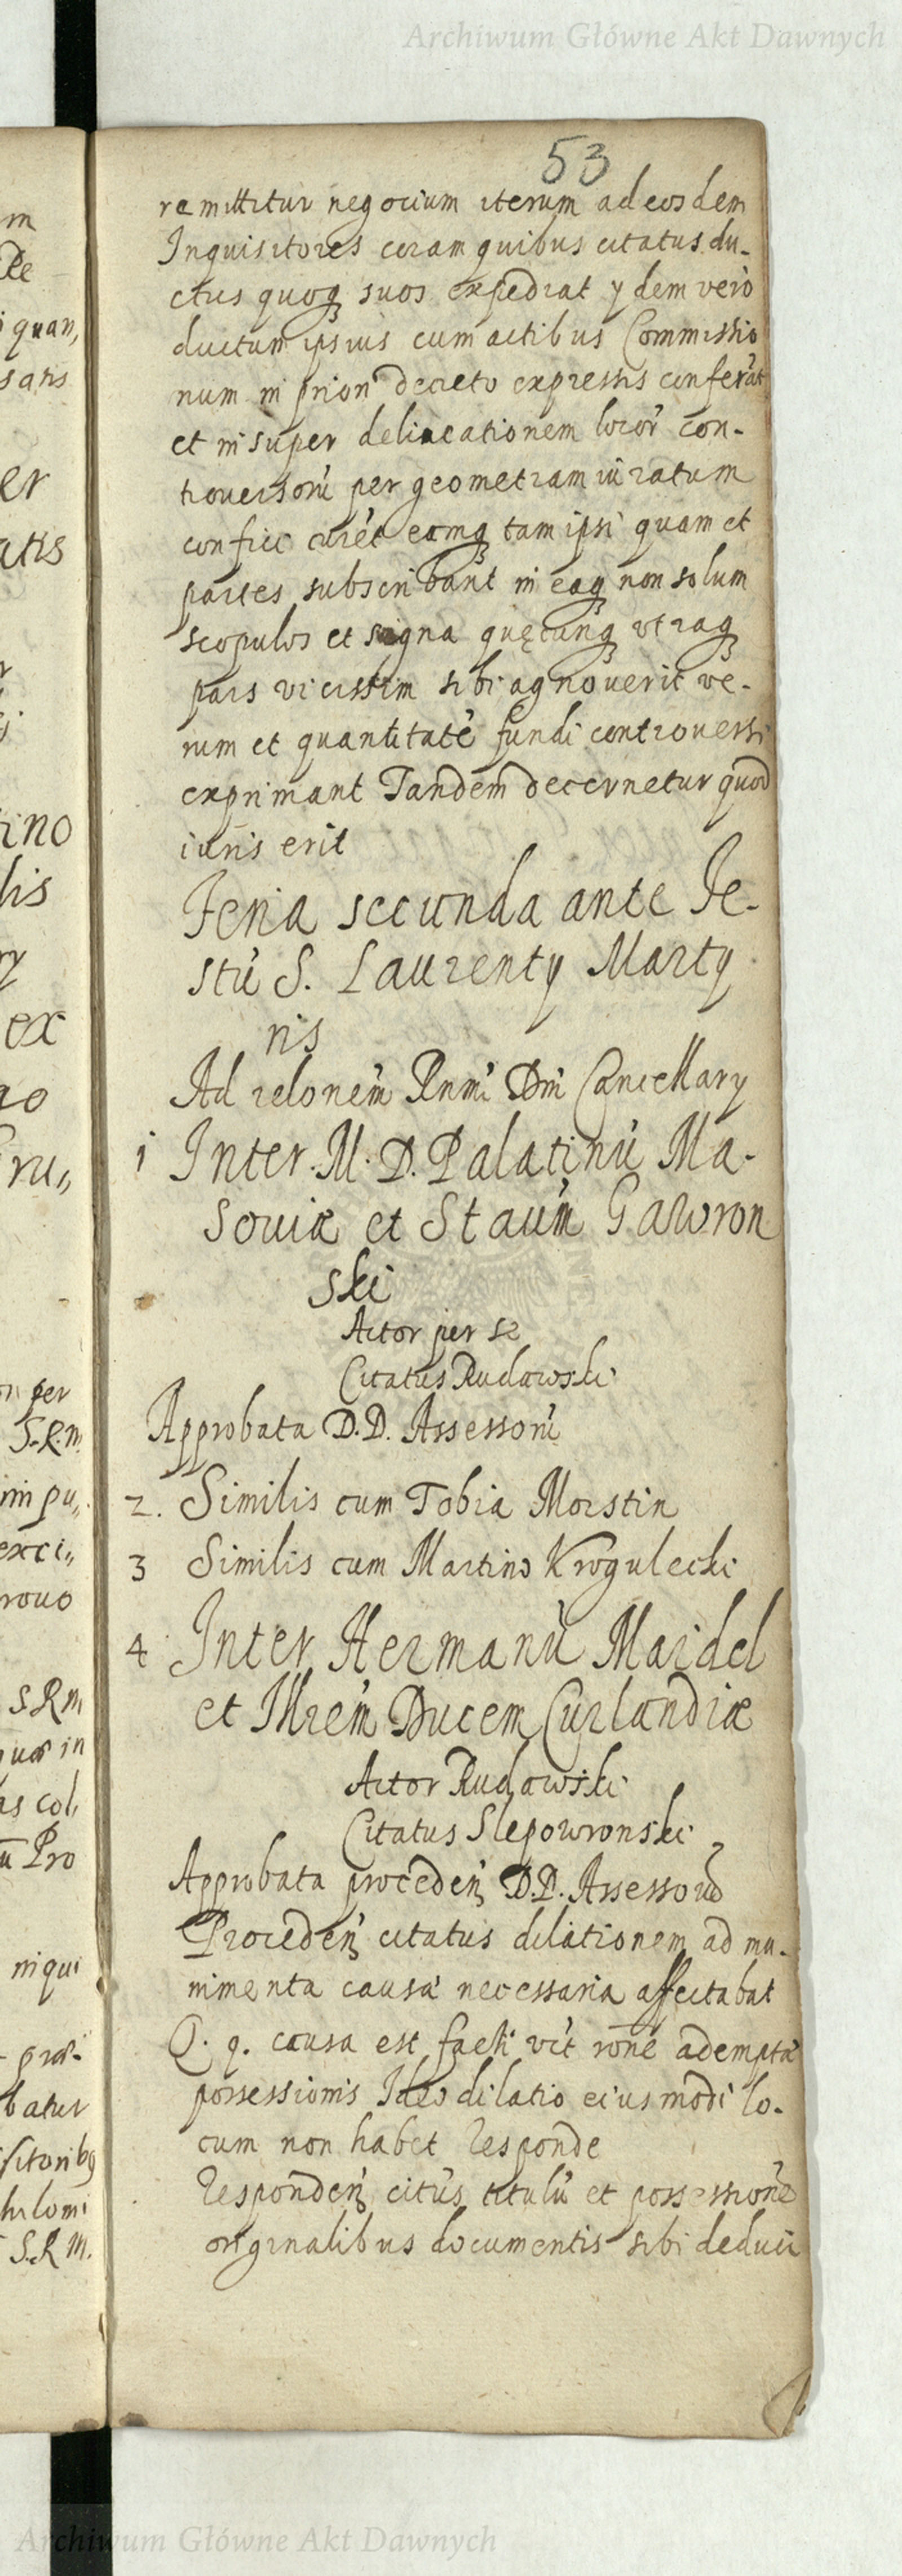 Archiwum Główne Akt Dawnych
53
remittitur negocium iterum ad eosdem
Inquisitores coram quibus citatus du-
ctus quoq suos expediat ydem vero
ductum ipsius cum actibus Commissio
num in priori decreto expressis conferāt
et insuper delineationem locor̄ con-
trouersorū per geometram iuratum
confici curēt eamq tam ipsi quam et
partes subscribant in eaq non solum
scopulos et signa quęcunq utraq
pars vicissim sibi agnouerit ve-
rum et quantitatē fundi controuersi
exprimant Tandem decernetur quod
iuris erit
Feria secunda ante Fe-
stū S. Laurenty Marty
ris
Ad relonem̄ Rnmi Dni Cancellary
1 Inter M. D. Palatinū Ma-
souiæ et Staum̄ Gawron
ski
Actor per se
Citatus Rudawski
Approbata D.D. Assessorū
2. Similis cum Tobia Morstin
3 Similis cum Martino Krogulecki
4 Inter Hermanū Maidel
et Illrem̄ Ducem Curlandiæ
Actor Rudawski
Citatus Slepowronski
Approbata proceden̄ D.D. Assessorū
Proceden̄ citatus dilationem ad mu-
nimenta causæ necessaria affectabat
Q. q. causa est facti vīt rōne adempta
possessionis Ideo dilatio eiusmodi lo-
cum non habet Responde
Responden̄ citūs titulū et possessionē
originalibus documentis sibi deduci
m
quan,
satis
er
atis
ino
lis
ry
ex
ru,,
per
S.R.M
im pu,,
exci,,
rouo
S R M
in
as col,
Pro
niqui
præ-
batur
S.R M.
Archiwum Główne Akt Dawnych